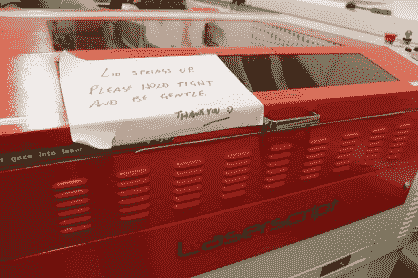 LID SPRINGS UP.
PLEASE HOLD TIGHT
AND BE GENTLE.
THANKYOU :)
goes into laser
LASERSCRIPT